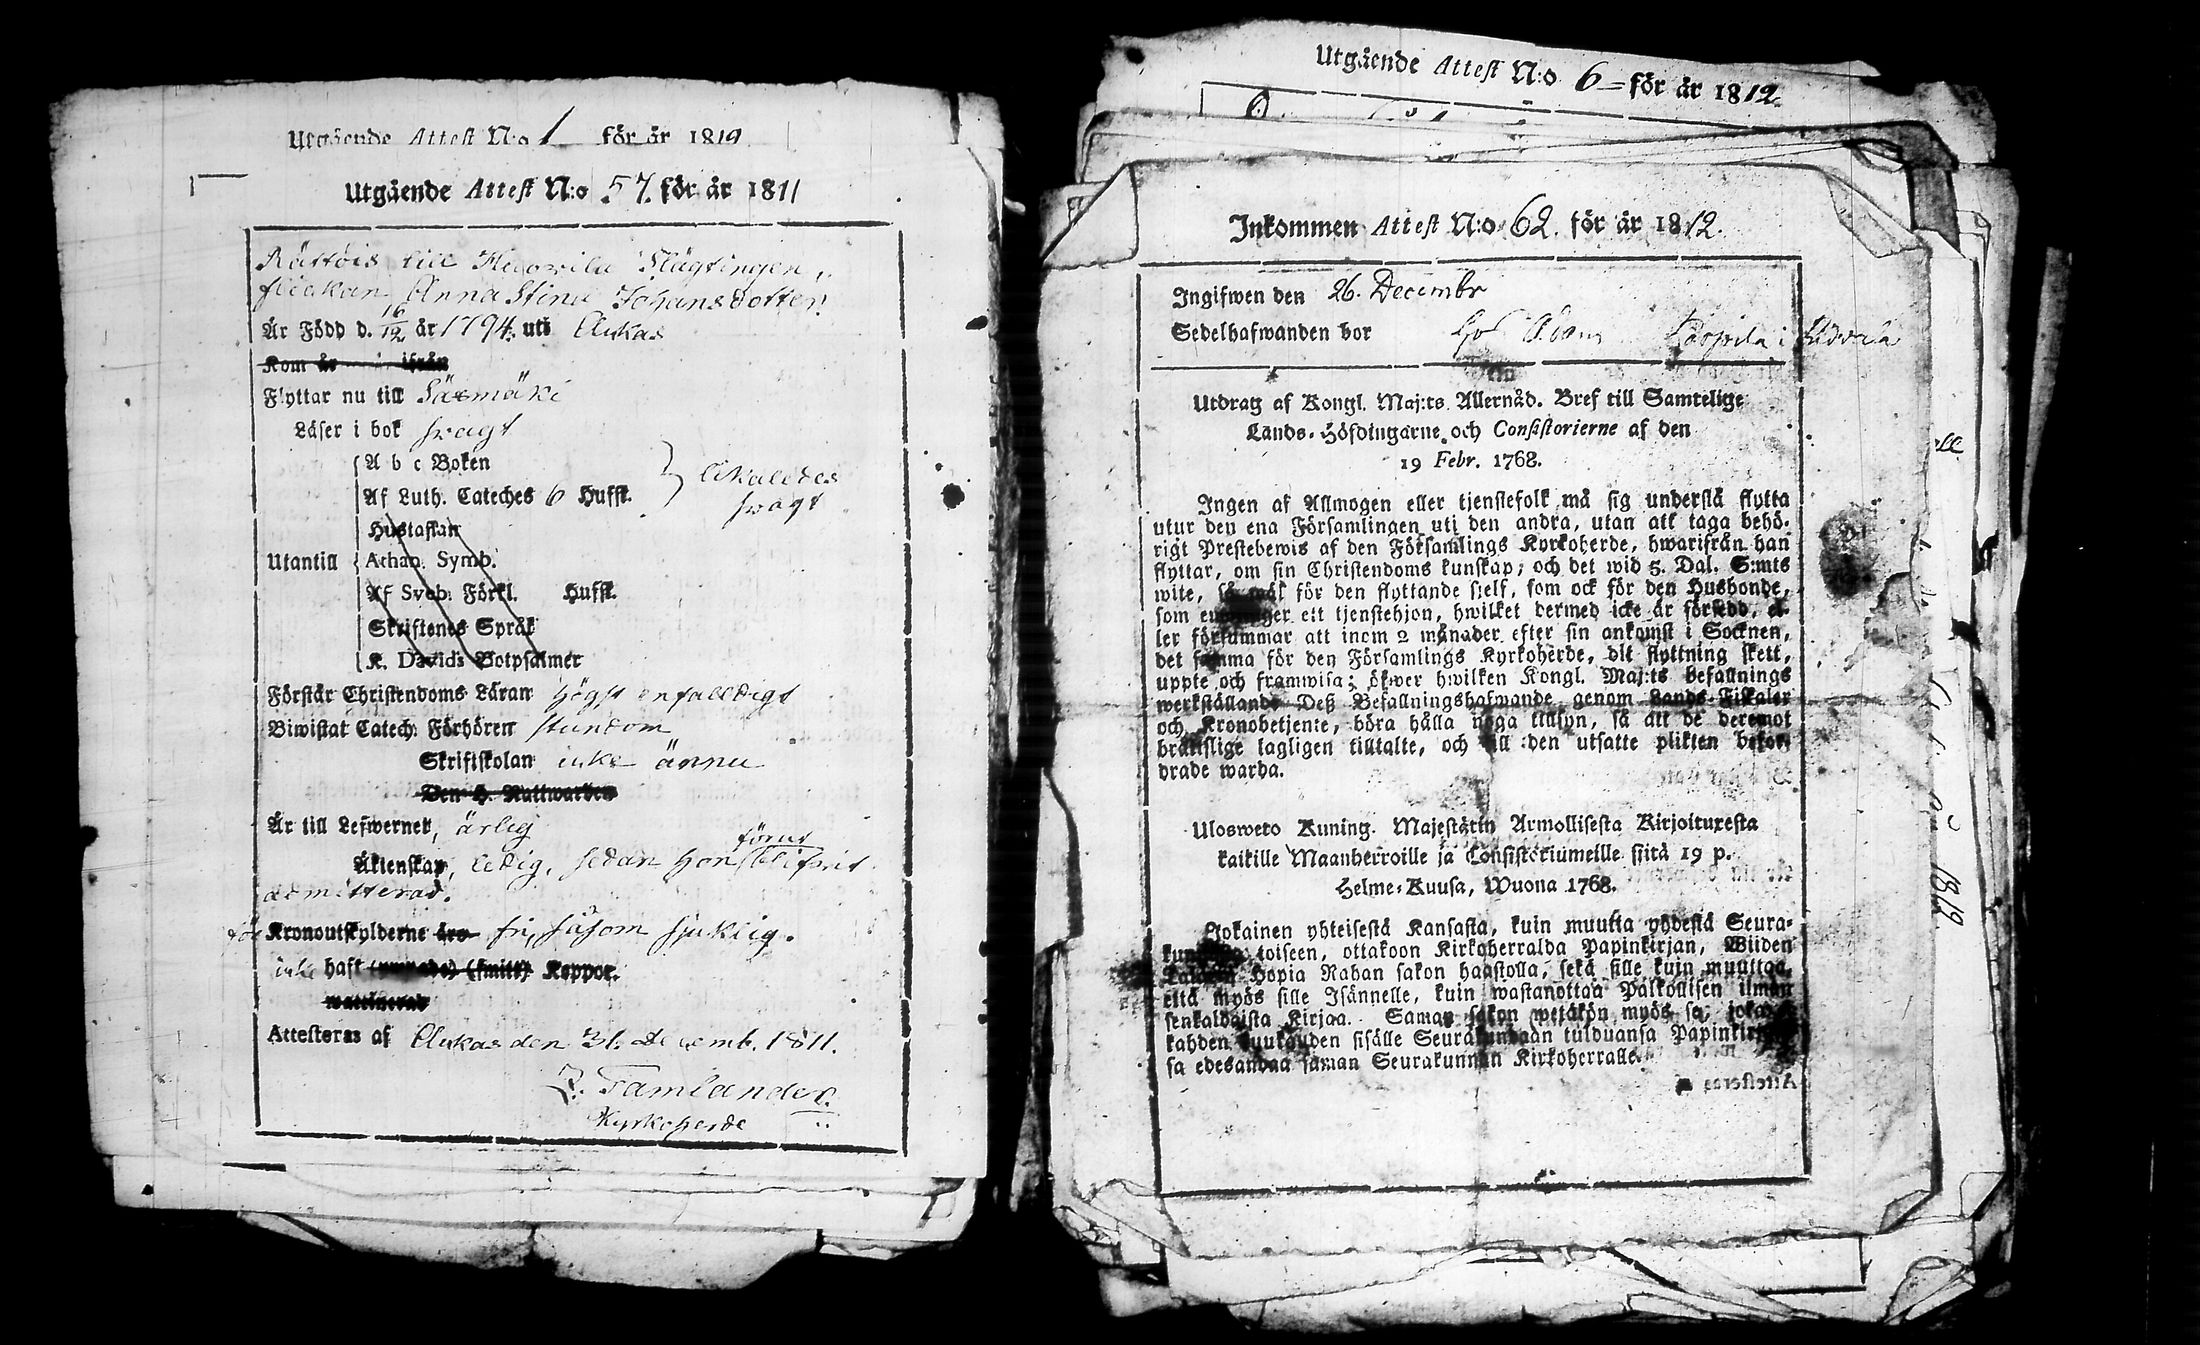 Utgående Attest N:o 1 för år 1819
Utgående Attest N:o 57. för år 1811
Rättöis till Huovila Slägtingen,
fickan Anna Stina Johansdotter!
Är Född d. 16/12 år 1794. uti Akas
Kom år ifrån
Flyttar nu till Sääsmäki
Läser i bok svagt
A b c Boken
Af Luth. Cateches 6 Hufst.
likaledes
svagt
Hustaflan
Utantill
Athan. Symb.
Af Sveb. Förkl. Hufst.
Skriftenes Språk
K. Davids Botpsalmer
Förstår Christendoms Läran högst enfalldigt
Biwistat Catech. Förhören stundom
Skriftskolan inke ännu
Den H. Nattwarden
Är till Lefwernet, ärlig
förut
Äktenskap, ledig, sedan hon blifvit
admitterad.
för Kronoutskylderne äro fri, såsom sjuklig.
inke haft Koppor.
Attesteras af Akas den 31. Decemb. 1811.
Tamlander
Kyrkoherde
Utgående Attest N:o 6 för år 1812.
Inkommen Attest N:o 62. för år 1812.
Ingifwen den 26. Decembr
Sedelhafwanden bor hos
Utdrag af Kongl. Maj:ts Allernåd. Bref till Samtelige
Lands-Höfdingarne och Consistorierne af den
19 Febr. 1768.
Ingen af Allmogen eller tjenstefolk må sig understå flytta
utur den ena Församlingen uti den andra, utan att taga behö-
rigt Prestebewis af den Församlings Kyrkoherde, hwarifrån han
flyttar, om sin Christendoms kunskap; och det wid 5. Dal. S:mts
wite, så wäl för den flyttande sjelf, som ock för den Husbonde,
som emottager ett tjenstehjon, hwilket dermed icke är försedd, el-
ler försummar att inom 2 månader efter sin ankomst i Socknen,
det samma för den Församlings Kyrkoherde, dit flyttning skett,
uppte och framwisa; öfwer hwilken Kongl. Maj:ts befallnings
werkställande Deß Befallningshafwande genom Lands-Fiskaler
och Kronobetjente, böra hålla noga tillsyn, så att de deremot
bråttslige lagligen tilltalte, och till den utsatte plikten befor-
drade warda.
Ulosweto Kuning. Majestätin Armollisesta Kirjoituxesta
kaikille Maanherroille ja Consistoriumeille siitä 19 p.
Helme-Kuusa, Wuona 1768.
Jokainen yhteisestä Kansasta, kuin muutta yhdestä Seura-
kunnasta toiseen, ottakoon Kirkoherralda Papinkirjan, Wiiden
Talarin Hopia Rahan sakon haastolla, sekä sille kuin muuttaa,
että myös sille Isännelle, kuin wastanottaa Palkollisen ilman
senkaldaista Kirjaa. Saman sakon wetäkön myös se, joka
kahden kuukauden sisälle Seurakundaan tulduansa Papinkirjan
sa edesandaa saman Seurakunnan Kirkoherralle.
Attesteras af
1812.